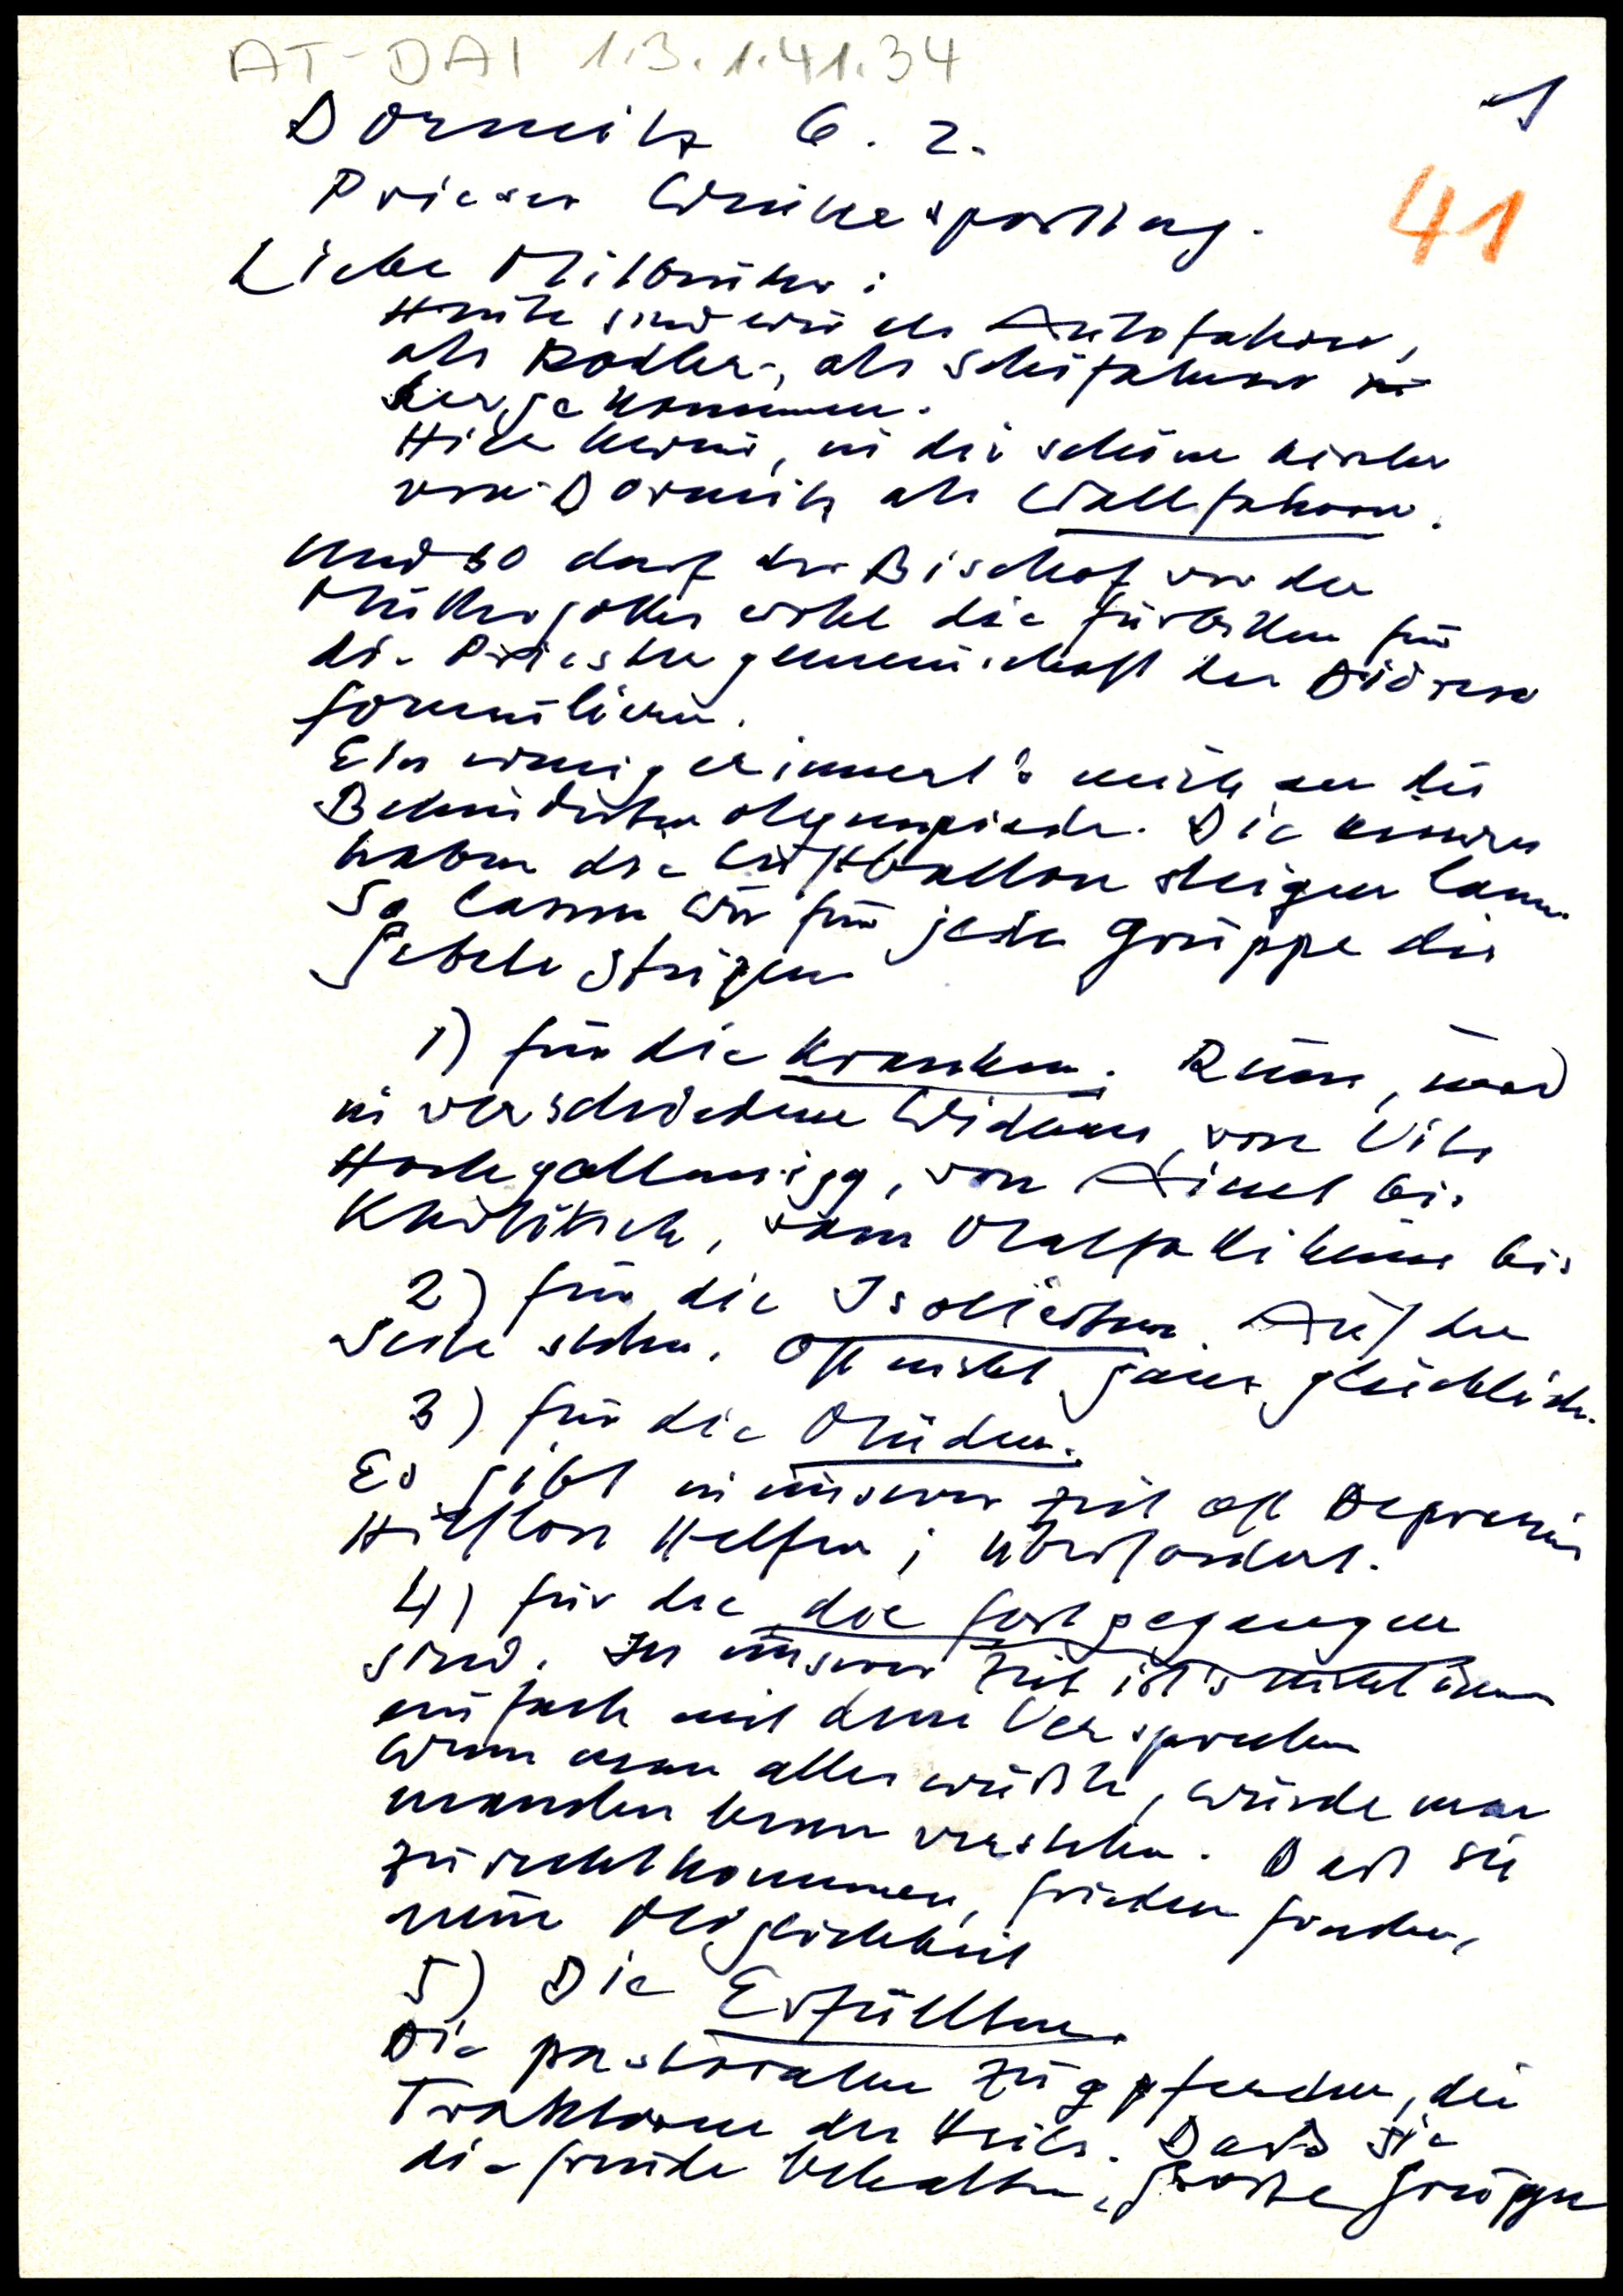 AT-DAI 1.3.1.41.34
1
Dormitz 6. 2.
41
Priester Wintersporttag.
Liebe Mitbrüder:
Heute sind wir als Autofahrer,
als Rodler, als Schifahrer
hergekommen.
Hier herein, in die schöne Kirche
von Dormitz als Wallfahrer.
Und so darf der Bischof vor der
Muttergottes wohl die Fürbitten für
die Priestergemeinschaft der Diözese
formulieren.
Ein wenig erinnert's mich an die
Behindertenolympiade. Die
haben die Luftballone steigen lassen.
So lassen wir für jede Gruppe die
Gebete steigen
1) für die Kranken. Rum, und
in verschiedene Widume, von Vils
Hochgallmigg, von Ainet bis
Kartitsch, vom bis
2) für die Isolierten. Auf der
Seite stehn. Oft nicht ganz glücklich.
3) für die Müden.
Es gibt in unserer Zeit oft Depression
Hilflose Helfer; überfordert.
4) für die die fortgegangen
sind. In unserer Zeit ist's nicht immer
einfach mit dem Versprechen
Wenn man alles wüßte, würde man
manchen besser verstehen. Daß sie
zurechtkommen, Frieden finden,
neue Möglichkeit
5) Die Erfüllten.
Die pastoralen Zugpferde, die
Traktoren des Heils. Daß sie
die Freude behalten, große Gruppe